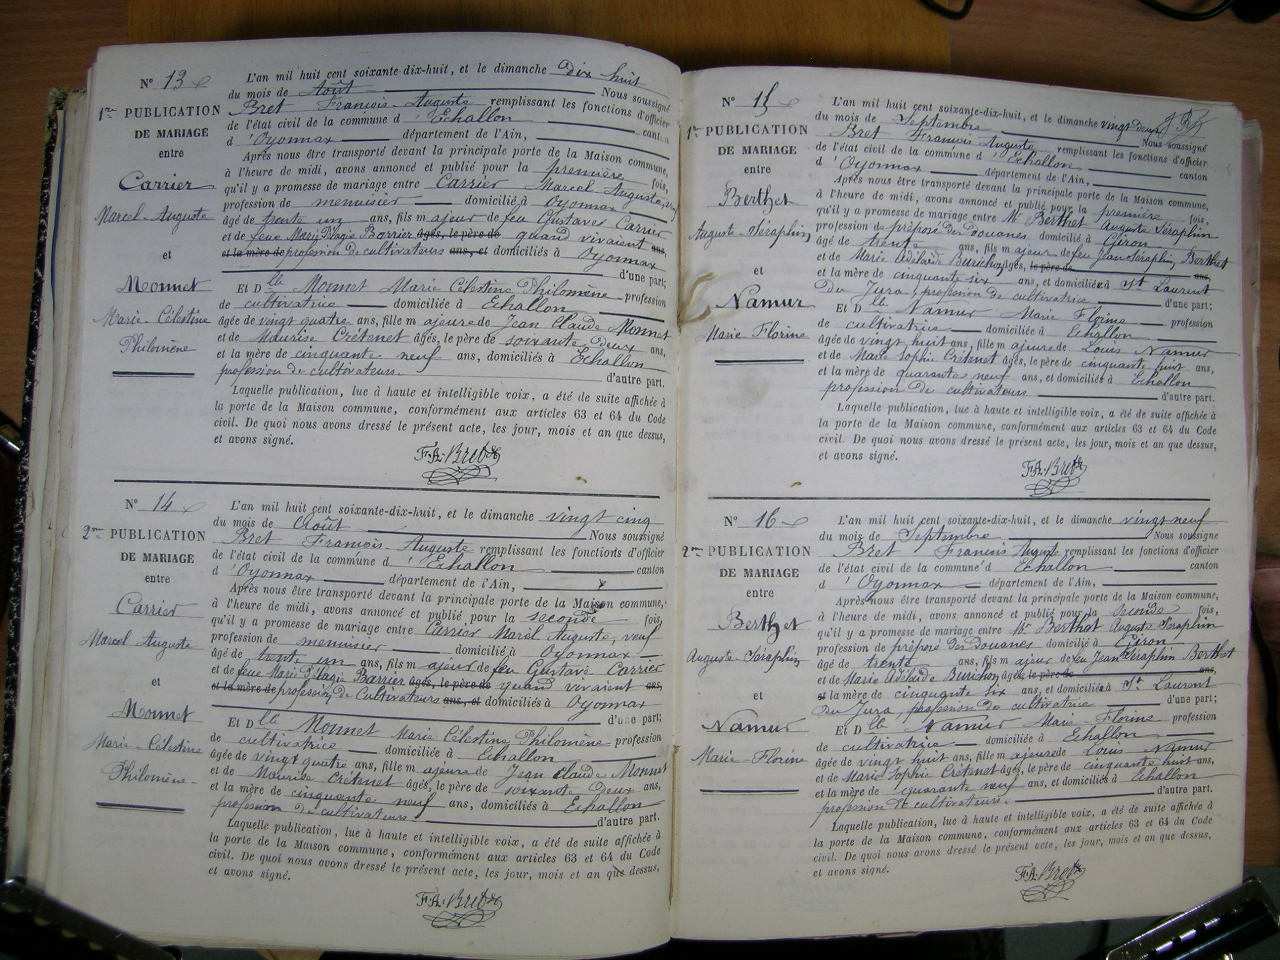 N° 13
1re PUBLICATION
DE MARIAGE
entre
Carrier
Marcel-Auguste
et
Monnet
Marie-Célestine
Philomène
L'an mil huit cent soixante-dix-huit, et le dimanche dix huit
du mois de Août Nous soussigné
Bret François-Auguste remplissant les fonctions d'officier
de l'état civil de la commune d'Echallon canton
d'Oyonnax département de l'Ain,
Après nous être transporté devant la principale porte de la Maison commune,
à l'heure de midi, avons annoncé et publié pour la première fois,
qu'il y a promesse de mariage entre Carrier Marcel-Auguste,
profession de menuisier domicilié à Oyonnax
âgé de trente un ans, fils majeur de feu Gustave Carrier
et de feue Marie Plagie Barrier âgés, le père de quand vivaient ans,
et la mère de profession de cultivateurs ans, et domiciliés à Oyonnax
d'une part;
Et Dlle Monnet Marie Célestine Philomène profession
de cultivatrice domiciliée à Echallon
âgée de vingt quatre ans, fille majeure de Jean Claude Monnet
et de Maurise Crétenet âgés, le père de soixante deux ans,
et la mère de cinquante neuf ans, domiciliés à Echallon
profession de cultivateurs. d'autre part.
Laquelle publication, lue à haute et intelligible voix, a été de suite affichée à
la porte de la Maison commune, conformément aux articles 63 et 64 du Code
civil. De quoi nous avons dressé le présent acte, les jour, mois et an que dessus,
et avons signé.
F.A. Bret
N° 14
2me PUBLICATION
DE MARIAGE
entre
Carrier
Marcel Auguste
et
Monnet
Marie-Célestine
Philomène
L'an mil huit cent soixante-dix-huit, et le dimanche vingt cinq
du mois de Août Nous soussigné
Bret François-Auguste remplissant les fonctions d'officier
de l'état civil de la commune d'Echallon canton
d'Oyonnax département de l'Ain,
Après nous être transporté devant la principale porte de la Maison commune,
à l'heure de midi, avons annoncé et publié pour la seconde fois,
qu'il y a promesse de mariage entre Carrier Marcel Auguste, veuf
profession de menuisier domicilié à Oyonnax
âgé de trente un ans, fils majeur de feu Gustave Carrier
et de feue Marie Plagie Barrier âgés, le père de quand vivaient ans,
et la mère de profession de Cultivateurs ans, et domiciliés à Oyonnax
d'une part;
Et Dlle Monnet Marie Célestine Philomène profession
de cultivatrice domiciliée à Echallon
âgée de vingt quatre ans, fille majeure de Jean Claude Monnet
et de Maurise Crétenet âgés, le père de soixante deux ans,
et la mère de cinquante neuf ans, domiciliés à Echallon
profession de cultivateurs d'autre part.
Laquelle publication, lue à haute et intelligible voix, a été de suite affichée à
la porte de la Maison commune, conformément aux articles 63 et 64 du Code
civil. De quoi nous avons dressé le présent acte, les jour, mois et an que dessus,
et avons signé.
F.A. Bret
N° 15
1re PUBLICATION
DE MARIAGE
entre
Berthet
Auguste-Séraphin
et
Namur
Marie Florine
L'an mil huit cent soixante-dix-huit, et le dimanche vingt deux
du mois de Septembre Nous soussigné
Bret François Auguste remplissant les fonctions d'officier
de l'état civil de la commune d'Echallon canton
d'Oyonnax département de l'Ain,
Après nous être transporté devant la principale porte de la Maison commune,
à l'heure de midi, avons annoncé et publié pour la première fois,
qu'il y a promesse de mariage entre Mr Berthet Auguste Séraphin
profession de préposé des Douanes domicilié à Giron
âgé de trente ans, fils majeur de feu Jean Séraphin Berthet
et de Marie Adélaïde âgés, le père de ans,
et la mère de cinquante six ans, et domiciliés à St Laurent
du Jura, profession de cultivatrice d'une part;
Et Dlle Namur Marie Florine profession
de cultivatrice domiciliée à Echallon
âgée de vingt huit ans, fille majeure de Louis Namur
et de Marie Sophie Crétenet âgés, le père de cinquante huit ans,
et la mère de quarante neuf ans, et domiciliés à Echallon
profession de cultivateurs d'autre part.
Laquelle publication, lue à haute et intelligible voix, a été de suite affichée à
la porte de la Maison commune, conformément aux articles 63 et 64 du Code
civil. De quoi nous avons dressé le présent acte, les jour, mois et an que dessus,
et avons signé.
F.A. Bret
N° 16
2me PUBLICATION
DE MARIAGE
entre
Berthet
Auguste-Séraphin
et
Namur
Marie-Florine
L'an mil huit cent soixante-dix-huit, et le dimanche vingt neuf
du mois de Septembre Nous soussigné
Bret François Auguste remplissant les fonctions d'officier
de l'état civil de la commune d'Echallon canton
d'Oyonnax département de l'Ain,
Après nous être transporté devant la principale porte de la Maison commune,
à l'heure de midi, avons annoncé et publié pour la seconde fois,
qu'il y a promesse de mariage entre Mr Berthet Auguste Séraphin
profession de préposé des Douanes domicilié à Giron
âgé de trente ans, fils majeur de feu Jean Séraphin Berthet
et de Marie Adélaïde âgés, le père de ans,
et la mère de cinquante six ans, et domiciliés à St Laurent
du Jura profession de cultivatrice d'une part;
Et Dlle Namur Marie-Florine profession
de cultivatrice domiciliée à Echallon
âgée de vingt huit ans, fille majeure de Louis Namur
et de Marie Sophie Crétenet âgés, le père de cinquante huit ans,
et la mère de quarante neuf ans, et domiciliés à Echallon
profession de cultivateurs. d'autre part.
Laquelle publication, lue à haute et intelligible voix, a été de suite affichée à
la porte de la Maison commune, conformément aux articles 63 et 64 du Code
civil. De quoi nous avons dressé le présent acte, les jour, mois et an que dessus,
et avons signé.
F.A. Bret